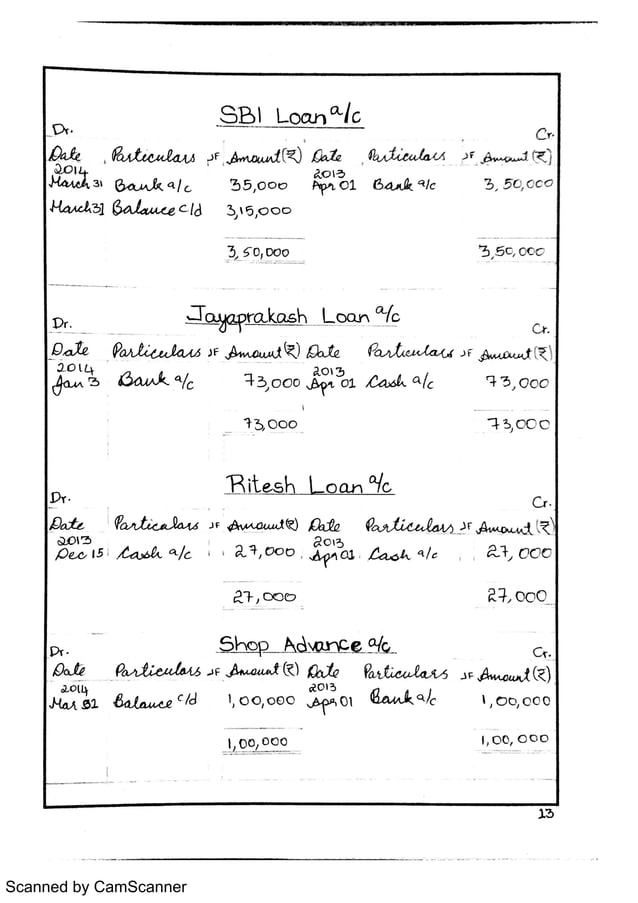 SBI Loan a/c
Dr. Cr.
Date Particulars JF Amount(₹) Date Particulars JF Amount(₹)
2014 2013
March 31 Bank a/c 35,000 Apr 01 Bank a/c 3,50,000
March 31 Balance c/d 3,15,000
3,50,000 3,50,000
Jayaprakash Loan a/c
Dr. Cr.
Date Particulars JF Amount(₹) Date Particulars JF Amount(₹)
2014 2013
Jan 3 Bank a/c 73,000 Apr 01 Cash a/c 73,000
73,000 73,000
Ritesh Loan a/c
Dr. Cr.
Date Particulars JF Amount(₹) Date Particulars JF Amount(₹)
2013 2013
Dec 15 Cash a/c 27,000 Apr 01 Cash a/c 27,000
27,000 27,000
Shop Advance a/c
Dr. Cr.
Date Particulars JF Amount(₹) Date Particulars JF Amount(₹)
2014 2013
Mar 31 Balance c/d 1,00,000 Apr 01 Bank a/c 1,00,000
1,00,000 1,00,000
13
Scanned by CamScanner